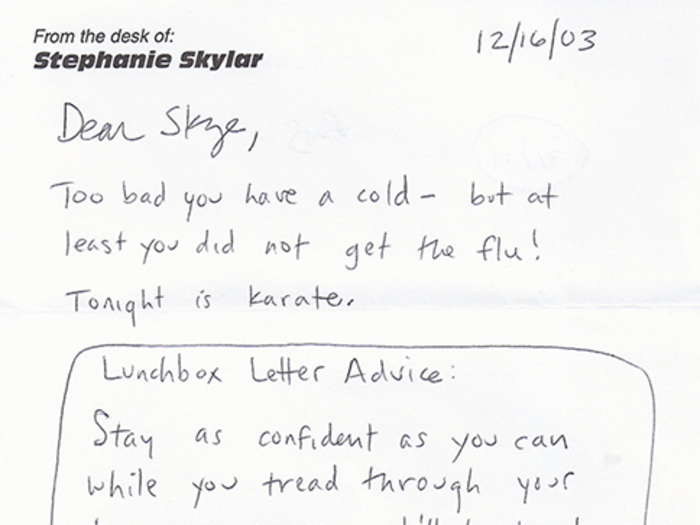 From the desk of:
Stephanie Skylar
12/16/03
Dear Skye,
Too bad you have a cold - but at
least you did not get the flu!
Tonight is karate.
Lunchbox Letter Advice:
Stay as confident as you can
while you tread through your